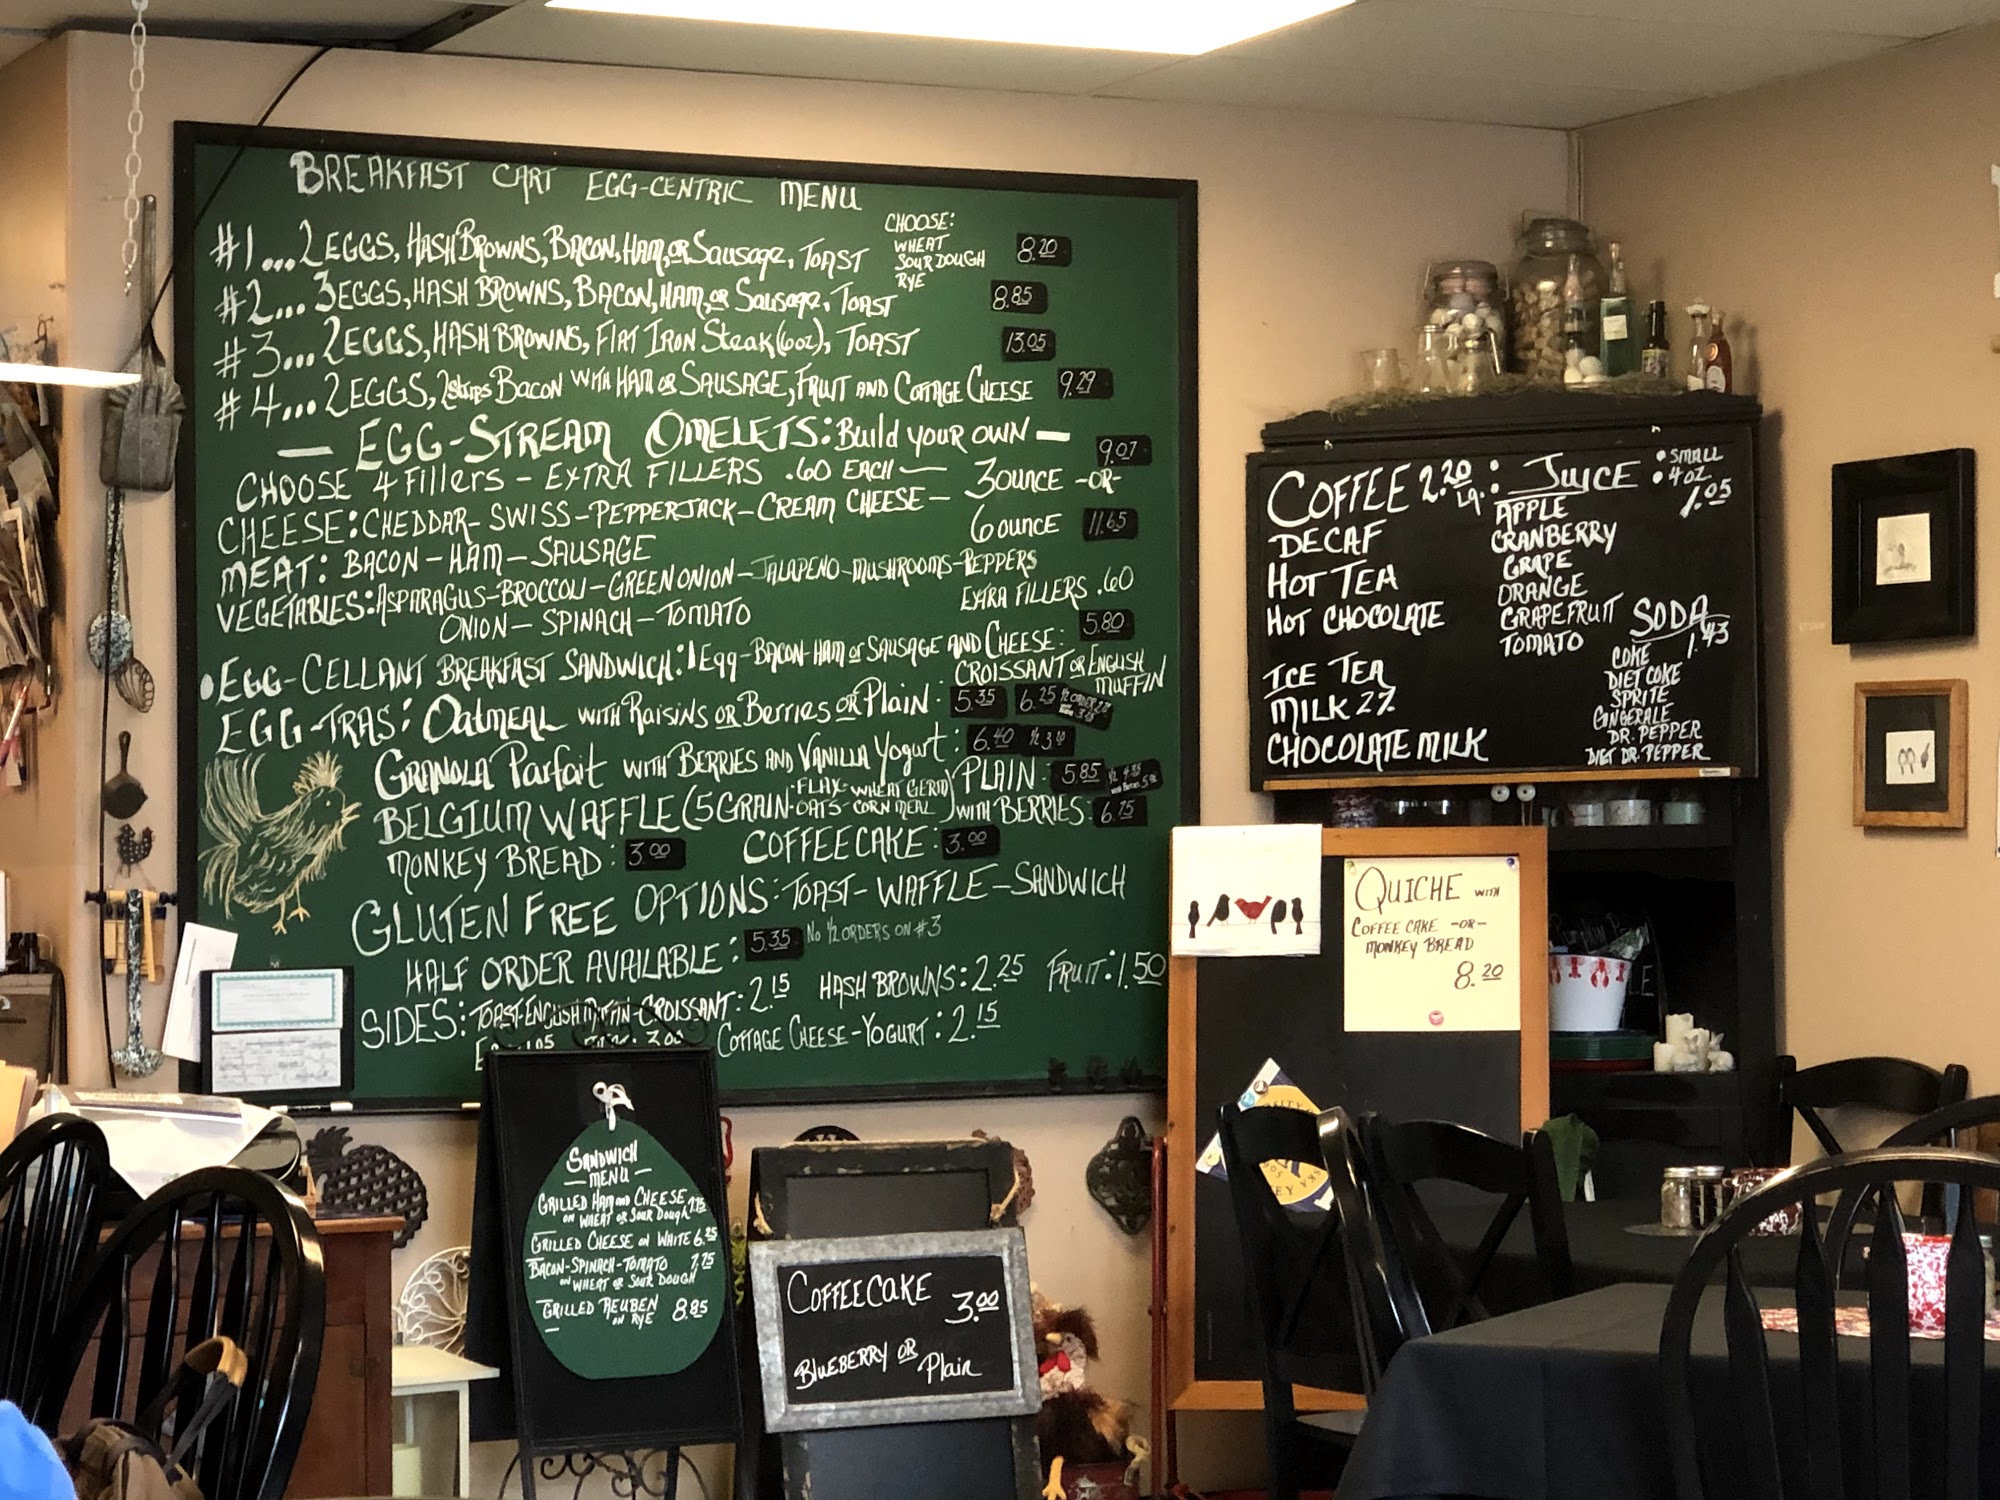 BREAKFAST CART EGG-CENTRIC MENU
#1...2 EGGS, HASH BROWNS, BACON, HAM, OR SAUSAGE, TOAST 8.20
CHOOSE:
WHEAT
SOUR DOUGH
RYE
#2...3 EGGS, HASH BROWNS, BACON, HAM, OR SAUSAGE, TOAST 8.85
#3...2 EGGS, HASH BROWNS, FLAT IRON STEAK (6oz), TOAST 13.05
#4...2 EGGS, 2 STRIPS BACON WITH HAM OR SAUSAGE, FRUIT AND COTTAGE CHEESE 9.29
— EGG-STREAM OMELETS: BUILD YOUR OWN —
CHOOSE 4 FILLERS - EXTRA FILLERS .60 EACH — 3 OUNCE -OR- 9.07
CHEESE: CHEDDAR - SWISS - PEPPERJACK - CREAM CHEESE - 6 OUNCE 11.65
MEAT: BACON - HAM - SAUSAGE
VEGETABLES: ASPARAGUS - BROCCOLI - GREEN ONION - JALAPENO - MUSHROOMS - PEPPERS
ONION - SPINACH - TOMATO EXTRA FILLERS .60
• EGG-CELLANT BREAKFAST SANDWICH: 1 EGG - BACON - HAM OR SAUSAGE AND CHEESE: 5.80
CROISSANT OR ENGLISH MUFFIN
EGG-TRAS: OATMEAL WITH RAISINS OR BERRIES OR PLAIN: 5.35 6.25
GRANOLA PARFAIT WITH BERRIES AND VANILLA YOGURT: 6.40
BELGIUM WAFFLE (5 GRAIN - FLAX - WHEAT GERM OATS - CORN MEAL) PLAIN - 5.85
WITH BERRIES: 6.75
MONKEY BREAD: 3.00 COFFEECAKE: 3.00
GLUTEN FREE OPTIONS: TOAST - WAFFLE - SANDWICH
HALF ORDER AVAILABLE: 5.35 NO 1/2 ORDERS ON #3
SIDES: TOAST - ENGLISH MUFFIN - CROISSANT: 2.15 HASH BROWNS: 2.25 FRUIT: 1.50
3.00 COTTAGE CHEESE - YOGURT: 2.15
COFFEE 2.20 LG.
DECAF
HOT TEA
HOT CHOCOLATE
ICE TEA
MILK 2%
CHOCOLATE MILK
: JUICE • SMALL
• 4 OZ
1.05
APPLE
CRANBERRY
GRAPE
ORANGE
GRAPEFRUIT
TOMATO
SODA
1.43
COKE
DIET COKE
SPRITE
GINGERALE
DR. PEPPER
DIET DR. PEPPER
QUICHE WITH
COFFEE CAKE -OR-
MONKEY BREAD
8.20
SANDWICH
MENU
GRILLED HAM AND CHEESE 7.75
ON WHEAT OR SOUR DOUGH
GRILLED CHEESE ON WHITE 6.25
BACON-SPINACH-TOMATO 7.75
ON WHEAT OR SOUR DOUGH
GRILLED REUBEN 8.85
ON RYE
COFFEECAKE
3.00
BLUEBERRY OR Plain